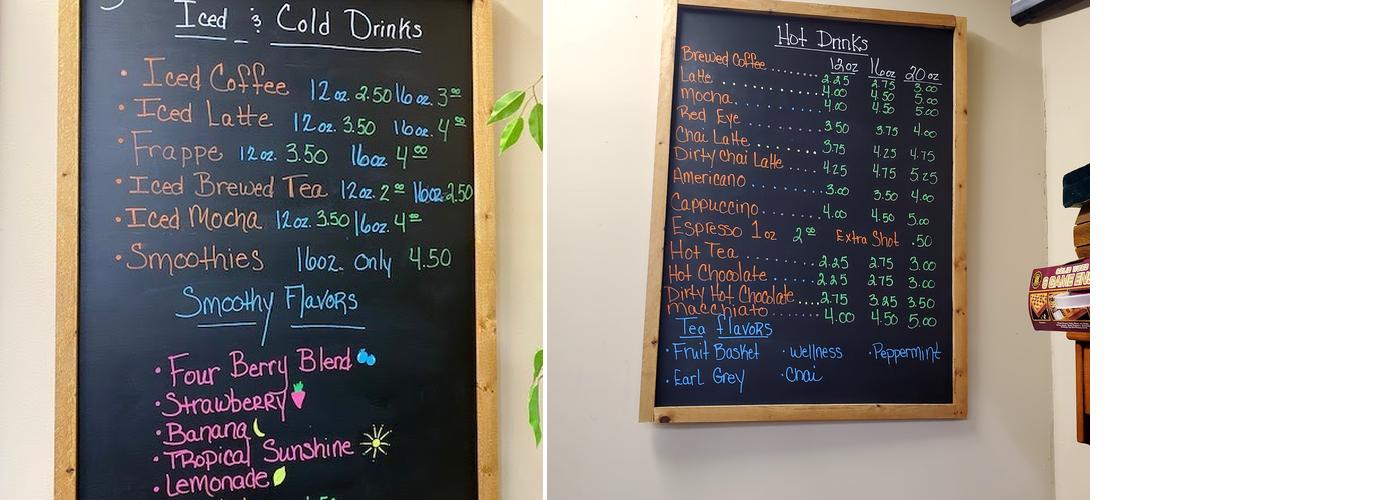 Iced & Cold Drinks
• Iced Coffee 12 oz. 2.50 16 oz. 3 00
• Iced Latte 12 oz. 3.50 16 oz. 4 00
• Frappe 12 oz. 3.50 16oz 4 00
• Iced Brewed Tea 12oz. 2 00 16oz. 2.50
• Iced Mocha 12oz. 3.50 16oz. 4 00
• Smoothies 16oz. only 4.50
Smoothy Flavors
• Four Berry Blend
• Strawberry
• Banana
• Tropical Sunshine
• Lemonade
Hot Drinks
12oz 16oz 20oz
Brewed Coffee ...... 2.25 2.75 3.00
Latte ............ 4.00 4.50 5.00
Mocha ........... 4.00 4.50 5.00
Red Eye ........... 3.50 3.75 4.00
Chai Latte ........ 3.75 4.25 4.75
Dirty Chai Latte .... 4.25 4.75 5.25
Americano ........ 3.00 3.50 4.00
Cappuccino ....... 4.00 4.50 5.00
Espresso 1oz 2 00 Extra Shot .50
Hot Tea .......... 2.25 2.75 3.00
Hot Chocolate ...... 2.25 2.75 3.00
Dirty Hot Chocolate .... 2.75 3.25 3.50
Macchiato ....... 4.00 4.50 5.00
Tea flavors
• Fruit Basket • wellness • Peppermint
• Earl Grey • Chai
6 GAME